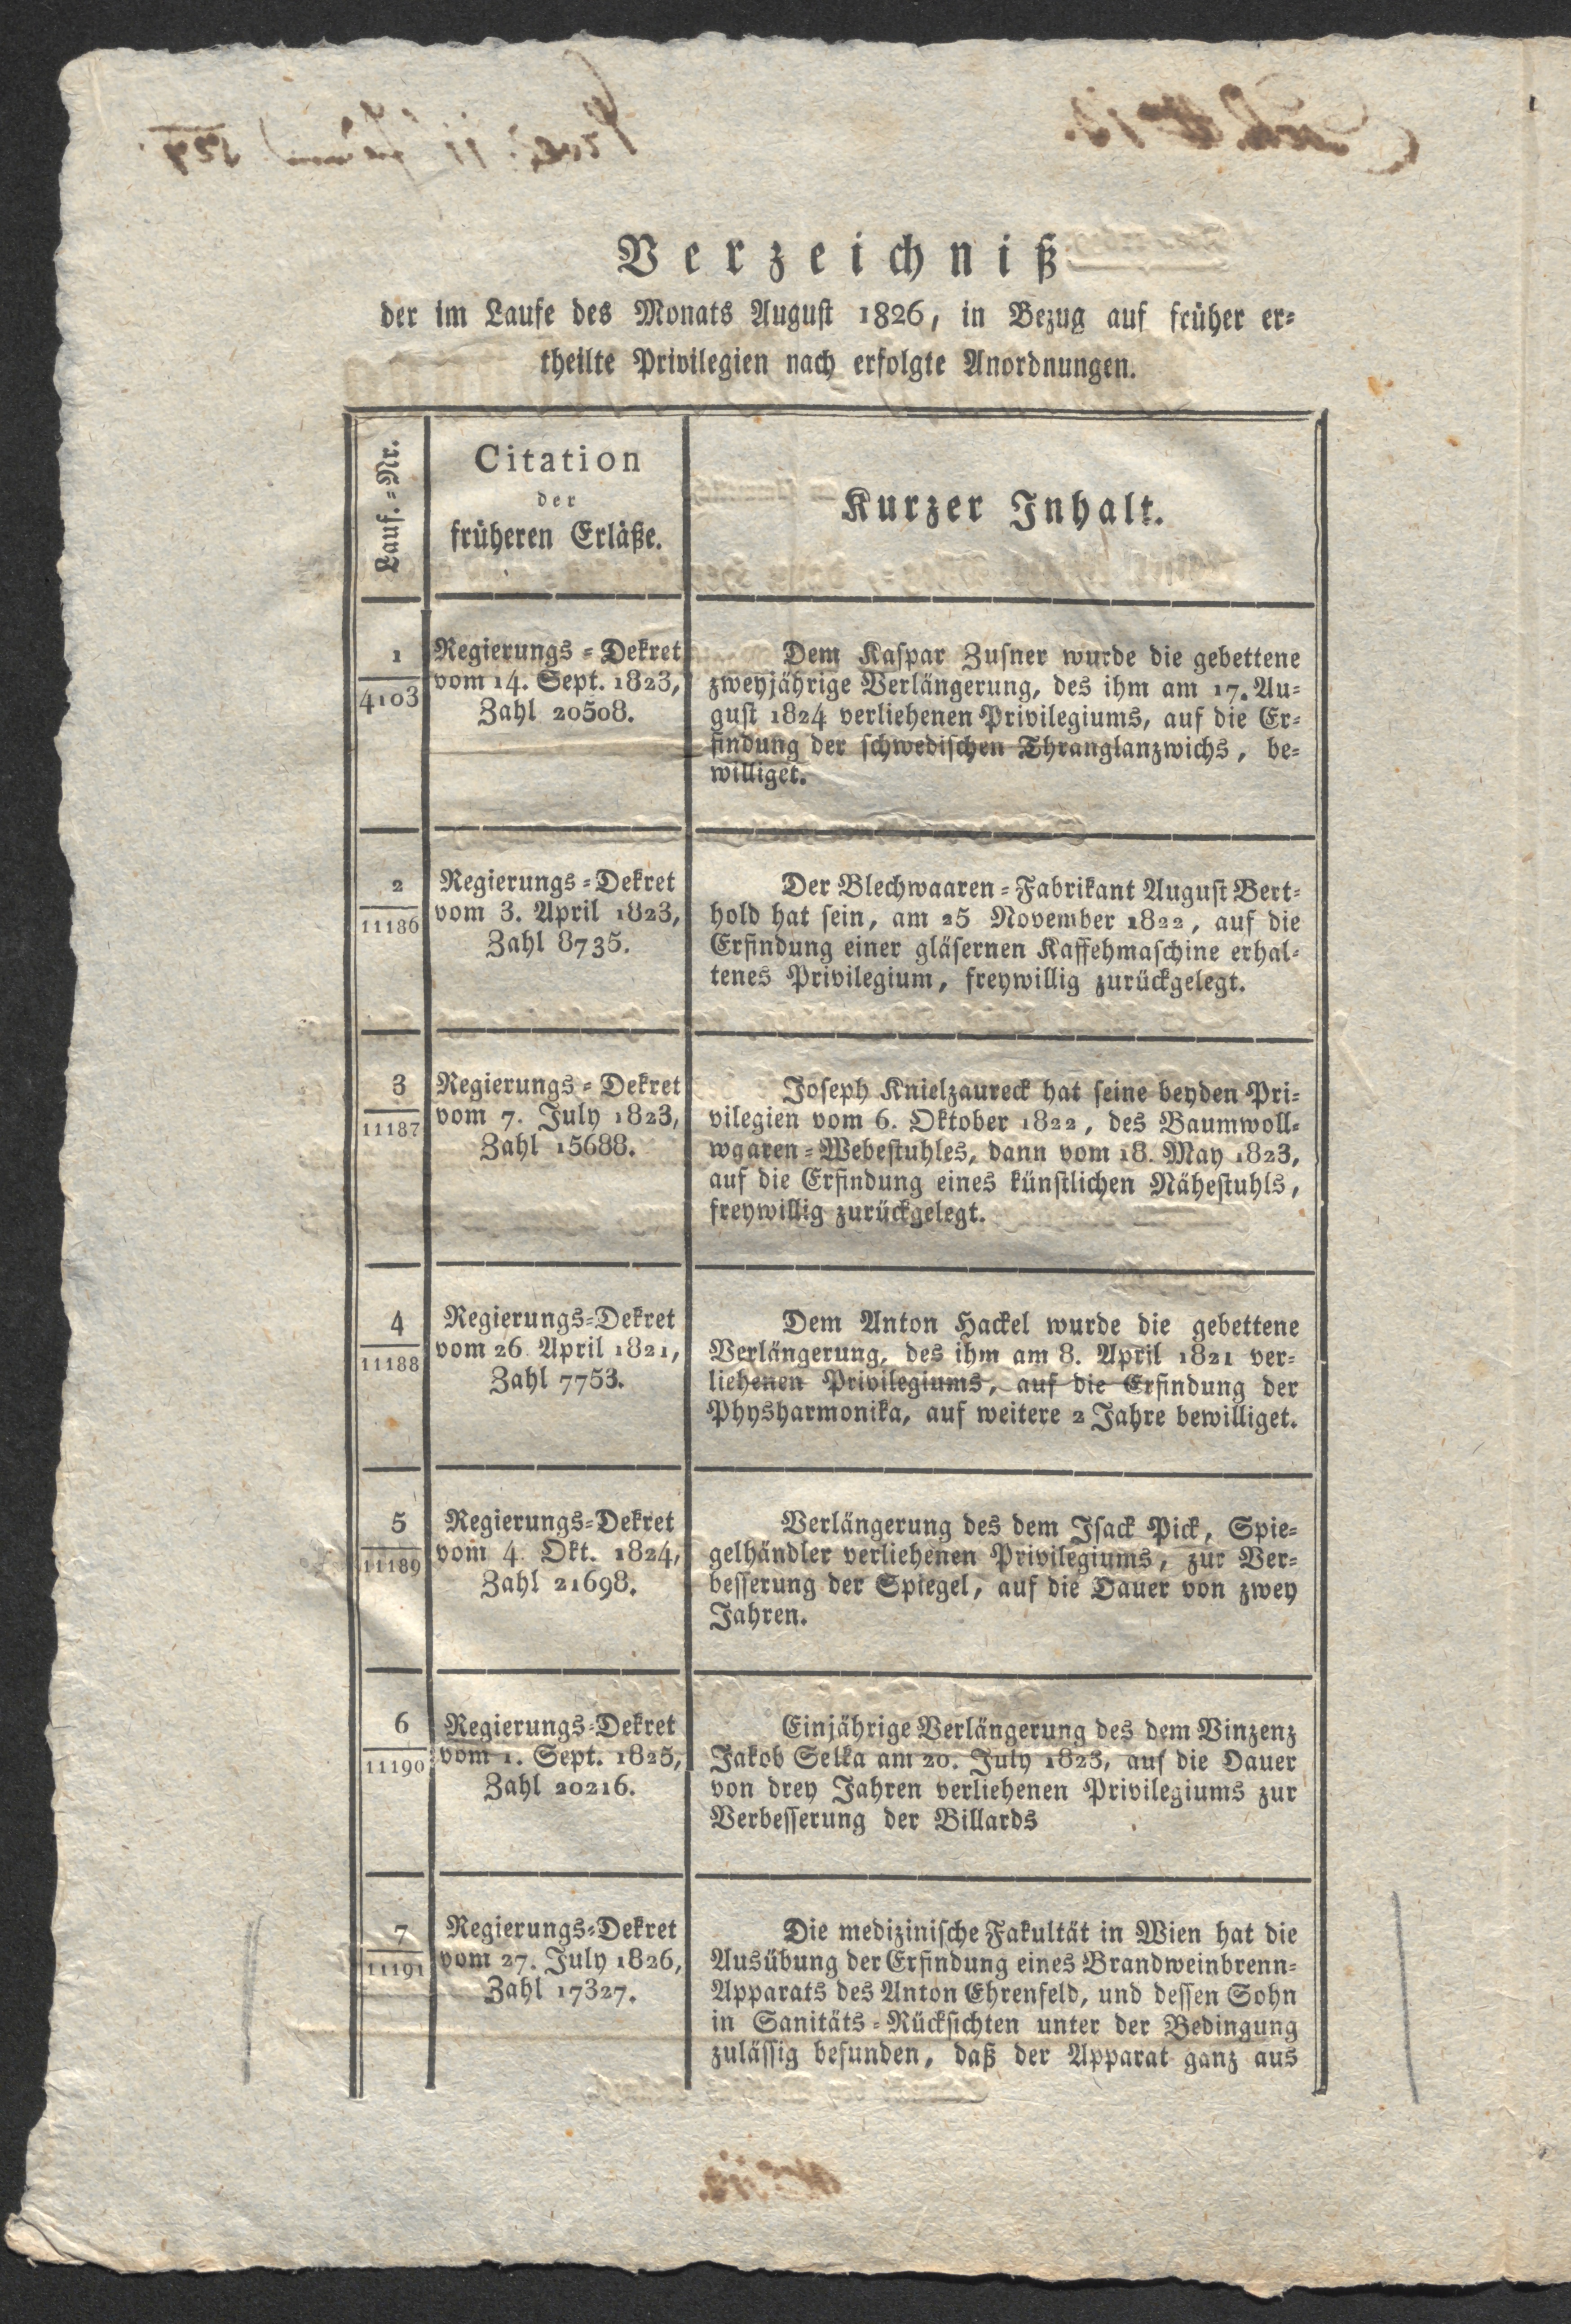 Verzeichniß
der im Laufe des Monats August 1826, in Bezug auf früher er=
theilte Privilegien nach erfolgte Anordnungen.
Lauf.=Nr.
Citation
der
früheren Erläße.
Kurzer Inhalt.
1
4103
Regierungs=Dekret
vom 14. Sept. 1823,
Zahl 20508.
Dem Kaspar Zusner wurde die gebettene
zweyjährige Verlängerung, des ihm am 17. Au=
gust 1824 verliehenen Privilegiums, auf die Er=
findung der schwedischen Thranglanzwichs, be=
williget.
2
11186
Regierungs=Dekret
vom 3. April 1823,
Zahl 8735.
Der Blechwaaren=Fabrikant August Bert=
hold hat sein, am 25 November 1822, auf die
Erfindung einer gläsernen Kaffehmaschine erhal=
tenes Privilegium, freywillig zurückgelegt.
3
11187
Regierungs=Dekret
vom 7. July 1823,
Zahl 15688.
Joseph Knielzaureck hat seine beyden Pri=
vilegien vom 6. Oktober 1822, des Baumwoll=
waaren=Webestuhles, dann vom 18. May 1823,
auf die Erfindung eines künstlichen Nähestuhls,
freywillig zurückgelegt.
4
11188
Regierungs=Dekret
vom 26. April 1821,
Zahl 7753.
Dem Anton Hackel wurde die gebettene
Verlängerung, des ihm am 8. April 1821 ver=
liehenen Privilegiums, auf die Erfindung der
Physharmonika, auf weitere 2 Jahre bewilliget.
5
11189
Regierungs=Dekret
vom 4. Okt. 1824,
Zahl 21698.
Verlängerung des dem Isack Pick, Spie=
gelhändler verliehenen Privilegiums, zur Ver=
besserung der Spiegel, auf die Dauer von zwey
Jahren.
6
11190
Regierungs=Dekret
vom 1. Sept. 1825,
Zahl 20216.
Einjährige Verlängerung des dem Vinzenz
Jakob Selka am 20. July 1823, auf die Dauer
von drey Jahren verliehenen Privilegiums zur
Verbesserung der Billards
7
11191
Regierungs=Dekret
vom 27. July 1826,
Zahl 17327.
Die medizinische Fakultät in Wien hat die
Ausübung der Erfindung eines Brandweinbrenn=
Apparats des Anton Ehrenfeld, und dessen Sohn
in Sanitäts=Rücksichten unter der Bedingung
zulässig befunden, daß der Apparat ganz aus